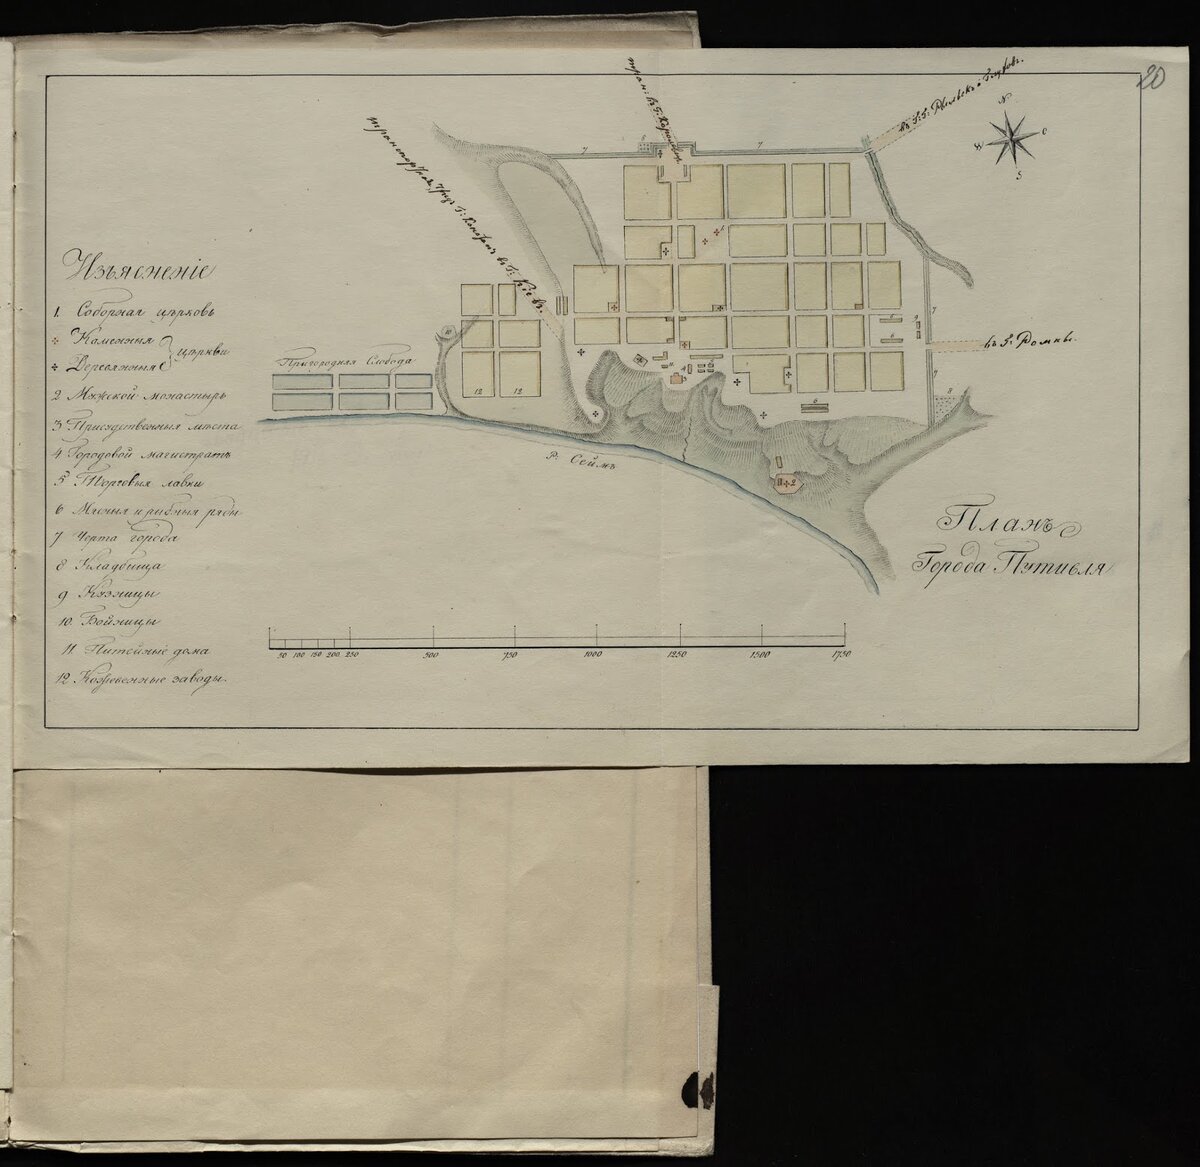 20
въ Г: Ромны.
N
O
S
W
Изъясненіе
1. Соборная церковь
Каменныя
Деревянныя } церкви
2 Мужской монастырь
3 Присудственныя места
4 Городовой магистратъ
5 Торговыя лавки
6 Мясныя и рыбныя ряды
7 Черта города
8 Кладбища
9 Кузницы
10. Бойницы
11 Питейные дома
12 Кожевенные заводы.
Пригородняя Слобода
Р. Сеймъ
Планъ
Города Путивля
50 100 150 200 250 500 750 1000 1250 1500 1750